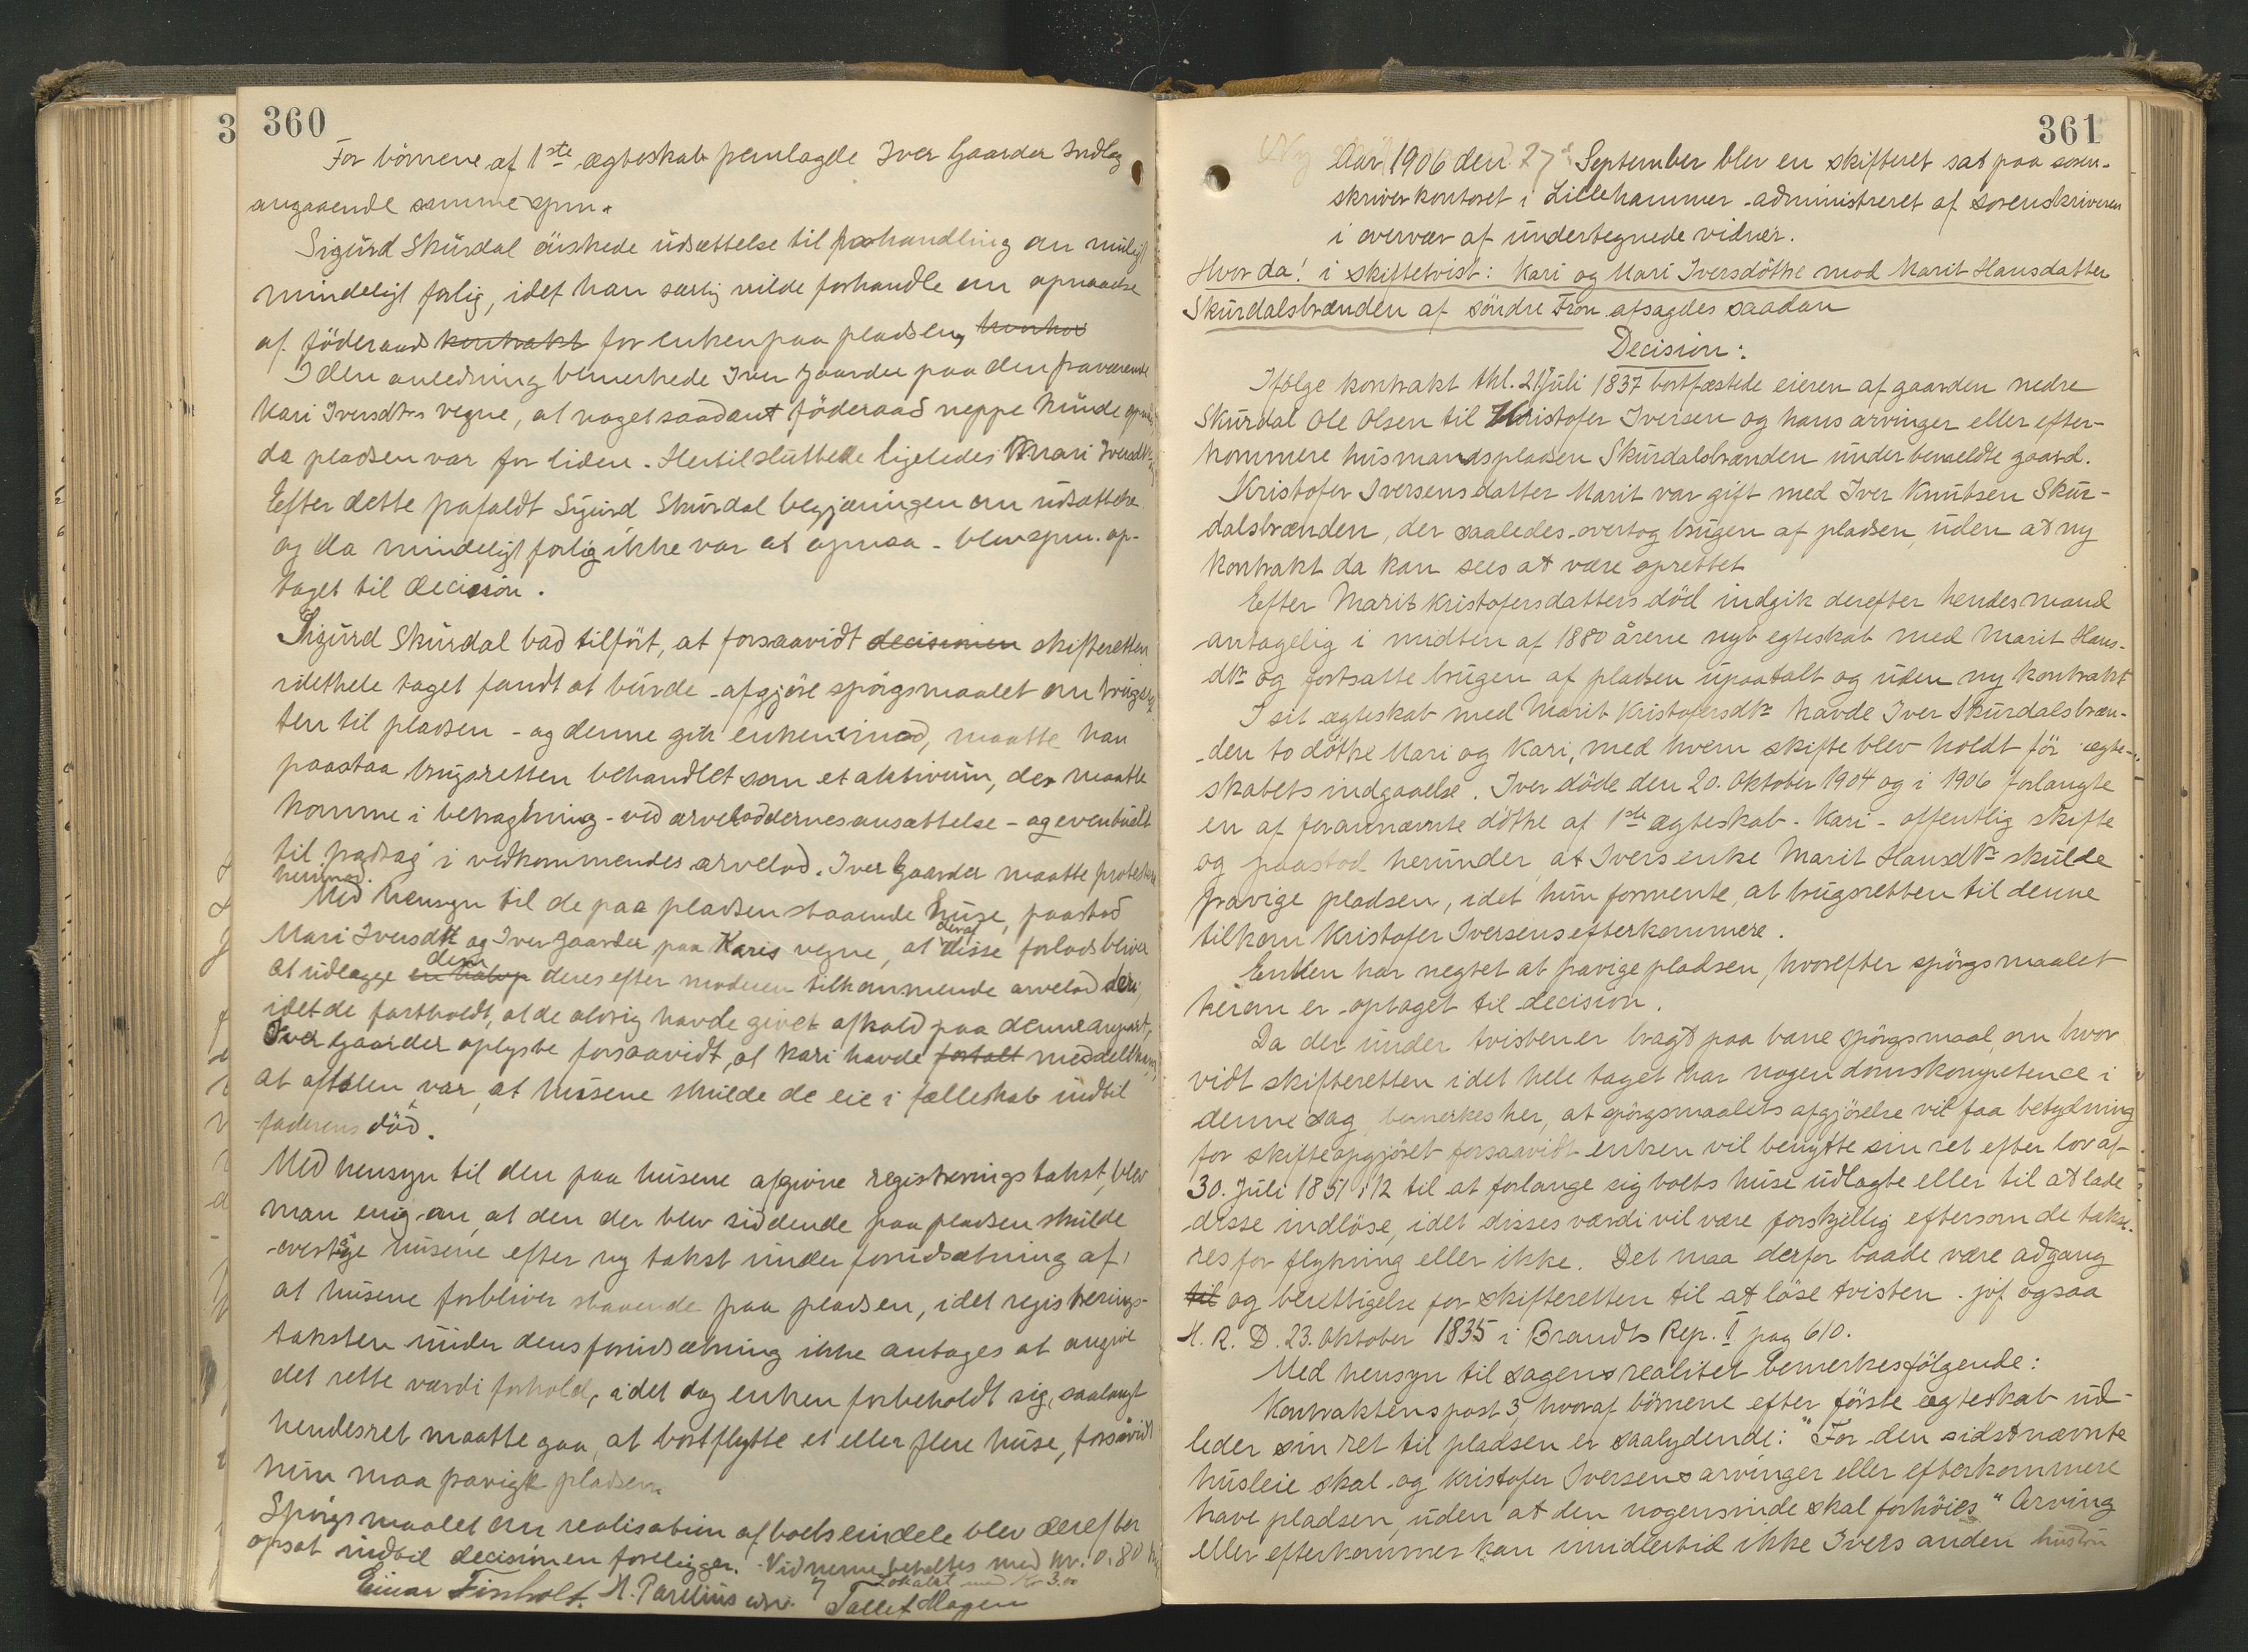 360
For börnene af 1ste ægteskab fremlagde Iver Gaarder Indlæg
angaaende samme spm.
Sigurd Skurdal önskede udsættelse til forhandling om muligt
mindeligt forlig, idet han særlig vilde forhandle om opnaaelse
af föderaads kontrakt for enken paa pladsen,
I den anledning bemerkede Iver Gaarder paa den fraværende
Kari Iversdtrs vegne, at noget saadant föderaad neppe kunde
da pladsen var for liden. Hertil sluttede ligeledes Mari Iversdtr
Efter dette frafaldt Sigurd Skurdal begjæringen om udsættelse
og da mindeligt forlig ikke var at opnaa - blev spm. op-
taget til decision.
Sigurd Skurdal bad tilfört, at forsaavidt decisionen skifteretten
idethele taget fandt at burde afgjöre spörgsmaalet om brugsret
ten til pladsen - og denne gik enken imod, maatte han
paastaa brugsretten behandlet som et aktivum, der maatte
komme i betragtning - ved arveloddernes ansættelse - og eventuelt
til fradrag i vedkommendes arvelod. Iver Gaarder maatte protestere
herimod.
Med hensyn til de paa pladsen staaende huse, paastod
Mari Iversdtr og Iver Gaarder paa Karis vegne, at disse forlods bliver
at udlægge dem deres efter moderen tilkommende arvelod deri,
idet de fastholdt, at de aldrig havde givet afkald paa denne anpart,
Iver Gaarder oplyste forsaavidt, at Kari havde fortalt meddelt ham,
at aftalen var, at husene skulde de eie i fælleskab indtil
faderens död.
Med hensyn til den paa husene afgivne registreringstakst, blev
man enig om, at den der blev siddende paa pladsen skulde
overtage husene efter ny takst under forudsætning af,
at husene forbliver staaende paa pladsen, idet registrerings-
taksten under dens forudsætning ikke antages at angive
det rette værdiforhold, idet dog enken forbeholdt sig, saalangt
hendes ret maatte gaa, at bortflytte et eller flere huse, forsåvidt
hun maa fravige pladsen.
Spörgsmaalet om realisation af boets eiendele blev derefter
opsat indtil decisionen foreligger. Vidnerne betaltes med kr. 0.80
Lokalet med Kr 3.00
Einar Finholt. H. Parelius Tallef Mogen
361
Aar 1906 den 27de September blev en skifteret sat paa soren-
skriverkontoret i Lillehammer administreret af sorenskriveren
i overvær af undertegnede vidner.
Hvor da! i skiftetvist: Kari og Mari Iversdötre mod Marit Hansdatter
Skurdalsbrænden af söndre Fron afsagdes saadan
Decision:
Ifölge kontrakt thl. 21 Juli 1837 bortfæstede eieren af gaarden nedre
Skurdal Ole Olsen til Kristofer Iversen og hans arvinger eller efter-
kommere husmandspladsen Skurdalsbrænden under bemeldte gaard.
Kristofer Iversens datter Marit var gift med Iver Knutsen Skur-
dalsbrænden, der saaledes overtog brugen af pladsen, uden at ny
kontrakt da kan sees at være oprettet
Efter Marit Kristofersdatters död indgik derefter hendes mand
antagelig i midten af 1880 årene nyt egteskab med Marit Hans-
dtr og fortsatte brugen af pladsen upaatalt og uden ny kontrakt
I sit ægteskab med Marit Kristofersdtr havde Iver Skurdalsbræn-
den to dötre Mari og Kari, med hvem skifte blev holdt för ægte-
skabets indgaaelse. Iver döde den 20. Oktober 1904 og i 1906 forlangte
en af forannævnte dötre af 1ste ægteskab - Kari - offentlig skifte
og paastod herunder, at Ivers enke Marit Hansdtr skulde
fravige pladsen, idet hun formente, at brugsretten til denne
tilkom Kristofer Iversens efterkommere.
Enken har negtet at fravige pladsen, hvorefter spörgsmaalet
herom er optaget til decision.
Da der under tvisten er bragt paa bane spörgsmaal, om hvor
vidt skifteretten i det hele taget har nogen domskompetence i
denne sag, bemerkes her, at spörgsmaalets afgjörelse vil faa betydning
for skifteopgjöret forsaavidt enken vil benytte sin ret efter lov af
30. Juli 1851 § 12 til at forlange sig boets huse udlagte eller til at lade
disse indlöse, idet disses værdi vil være forskjellig eftersom de takse-
res for flytning eller ikke. Det maa derfor baade være adgang
til og berettigelse for skifteretten til at löse tvisten. jvf ogsaa
H. R. D. 23. Oktober 1835 i Brandts Rep. I pag 610.
Med hensyn til sagens realitet bemerkes fölgende:
Kontraktens post 3, hvoraf börnene efter förste ægteskab ud-
leder sin ret til pladsen er saalydende: "For den sidstnævnte
husleie skal og Kristofer Iversens arvinger eller efterkommere
have pladsen, uden at den nogensinde skal forhöies." Arving
eller efterkommer kan imidlertid ikke Ivers anden hustru